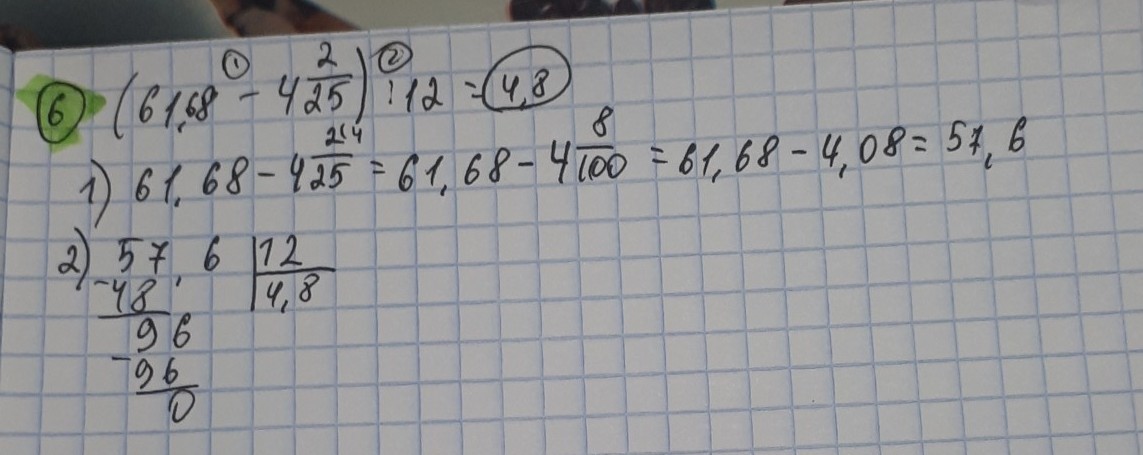 6 (61,68 - 4 2/25) : 12 = 4,8
1 2
1) 61,68 - 4 2(4/25 = 61,68 - 4 8/100 = 61,68 - 4,08 = 57,6
2) 57,6 | 12
- 48 | 4,8
96
- 96
0